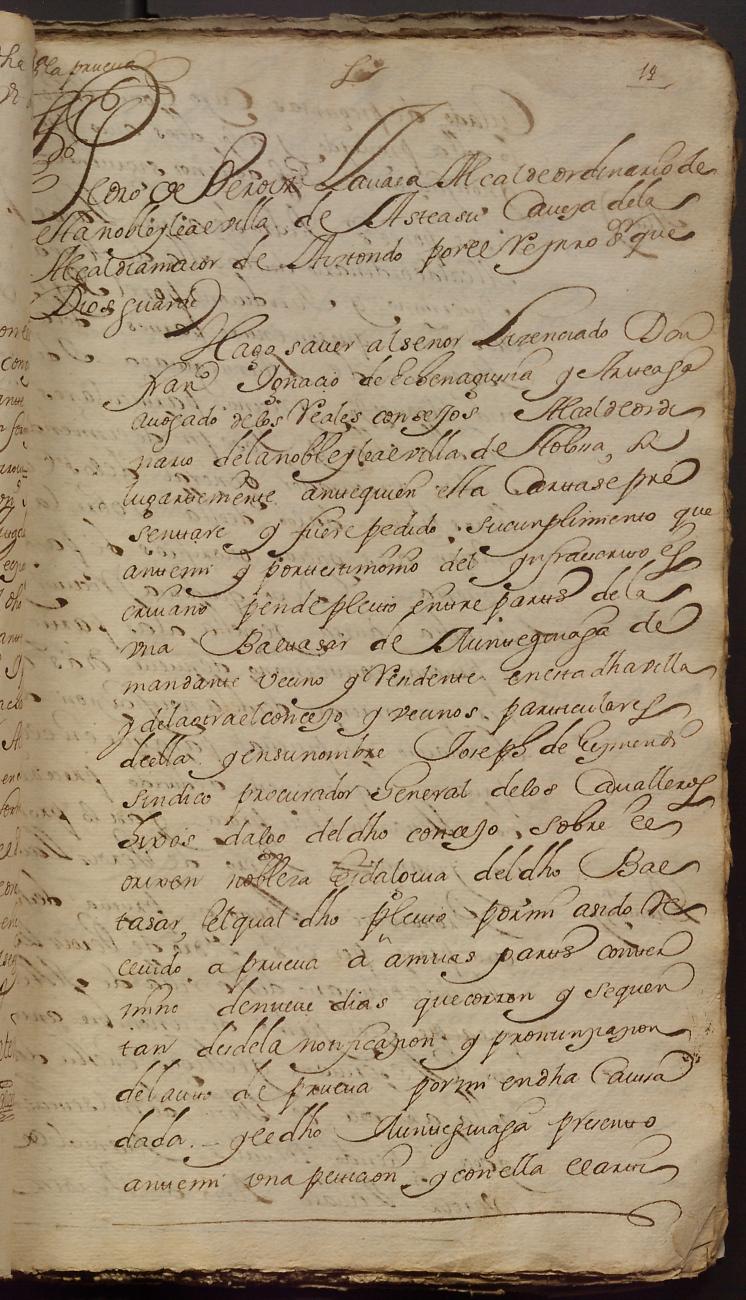 la prueva
19
Pedro de Veroiz Laurca Alcalde ordinario de
esta noble y leal villa de Asteasu Caveza dela
Alcaldia maior de Aiztondo por el Rey nro Sr que
Dios guarde
Hago saver al señor Lizenciado Don
Franco Ignacio de Echenagusia y Arteaga
avogado delos Reales consejos Alcalde ordi
nario dela noble y leal villa de
lugartheniente ante quien esta Carta se pre
sentare y fuere pedido su cumplimiento que
ante mi y por testimonio del ynfraescrito es
crivano pende pleito entre partes dela
vna Baltasar de Aunteguiaga de
mandante vecino y Residente en esta dha villa
y dela otra el concejo y vecinos particulares
de ella y en su nombre Joseph de
sindico procurador General delos Cavalleros
hijos dalgo del dho concejo sobre el
orixen nobleza hidalguia del dho Bal
tasar, el qual dho pleito por mi a sido Re
cevido a prueva a ambas partes con ter
mino de nueve dias que corren y se quen
tan desde la notificazion y pronunziazion
del auto de prueva por mi en dha Causa
dada y el dho Aunteguiaga presento
ante mi vna peticion y con ella el arti